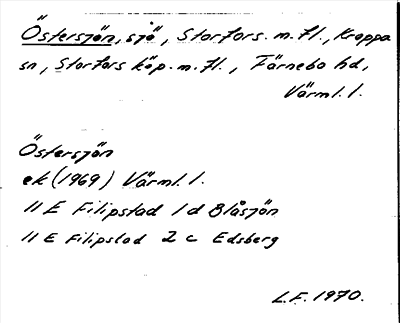 Östersjön, sjö, Storfors. m. fl., Kroppa
sn, Storfors köp. m. fl., Färnebo hd,
Värml. l.
Östersjön
ek (1969) Värml. l.
11 E Filipstad 1 d Blåsjön
11 E Filipstad 2 c Edsberg
L.F. 1970.